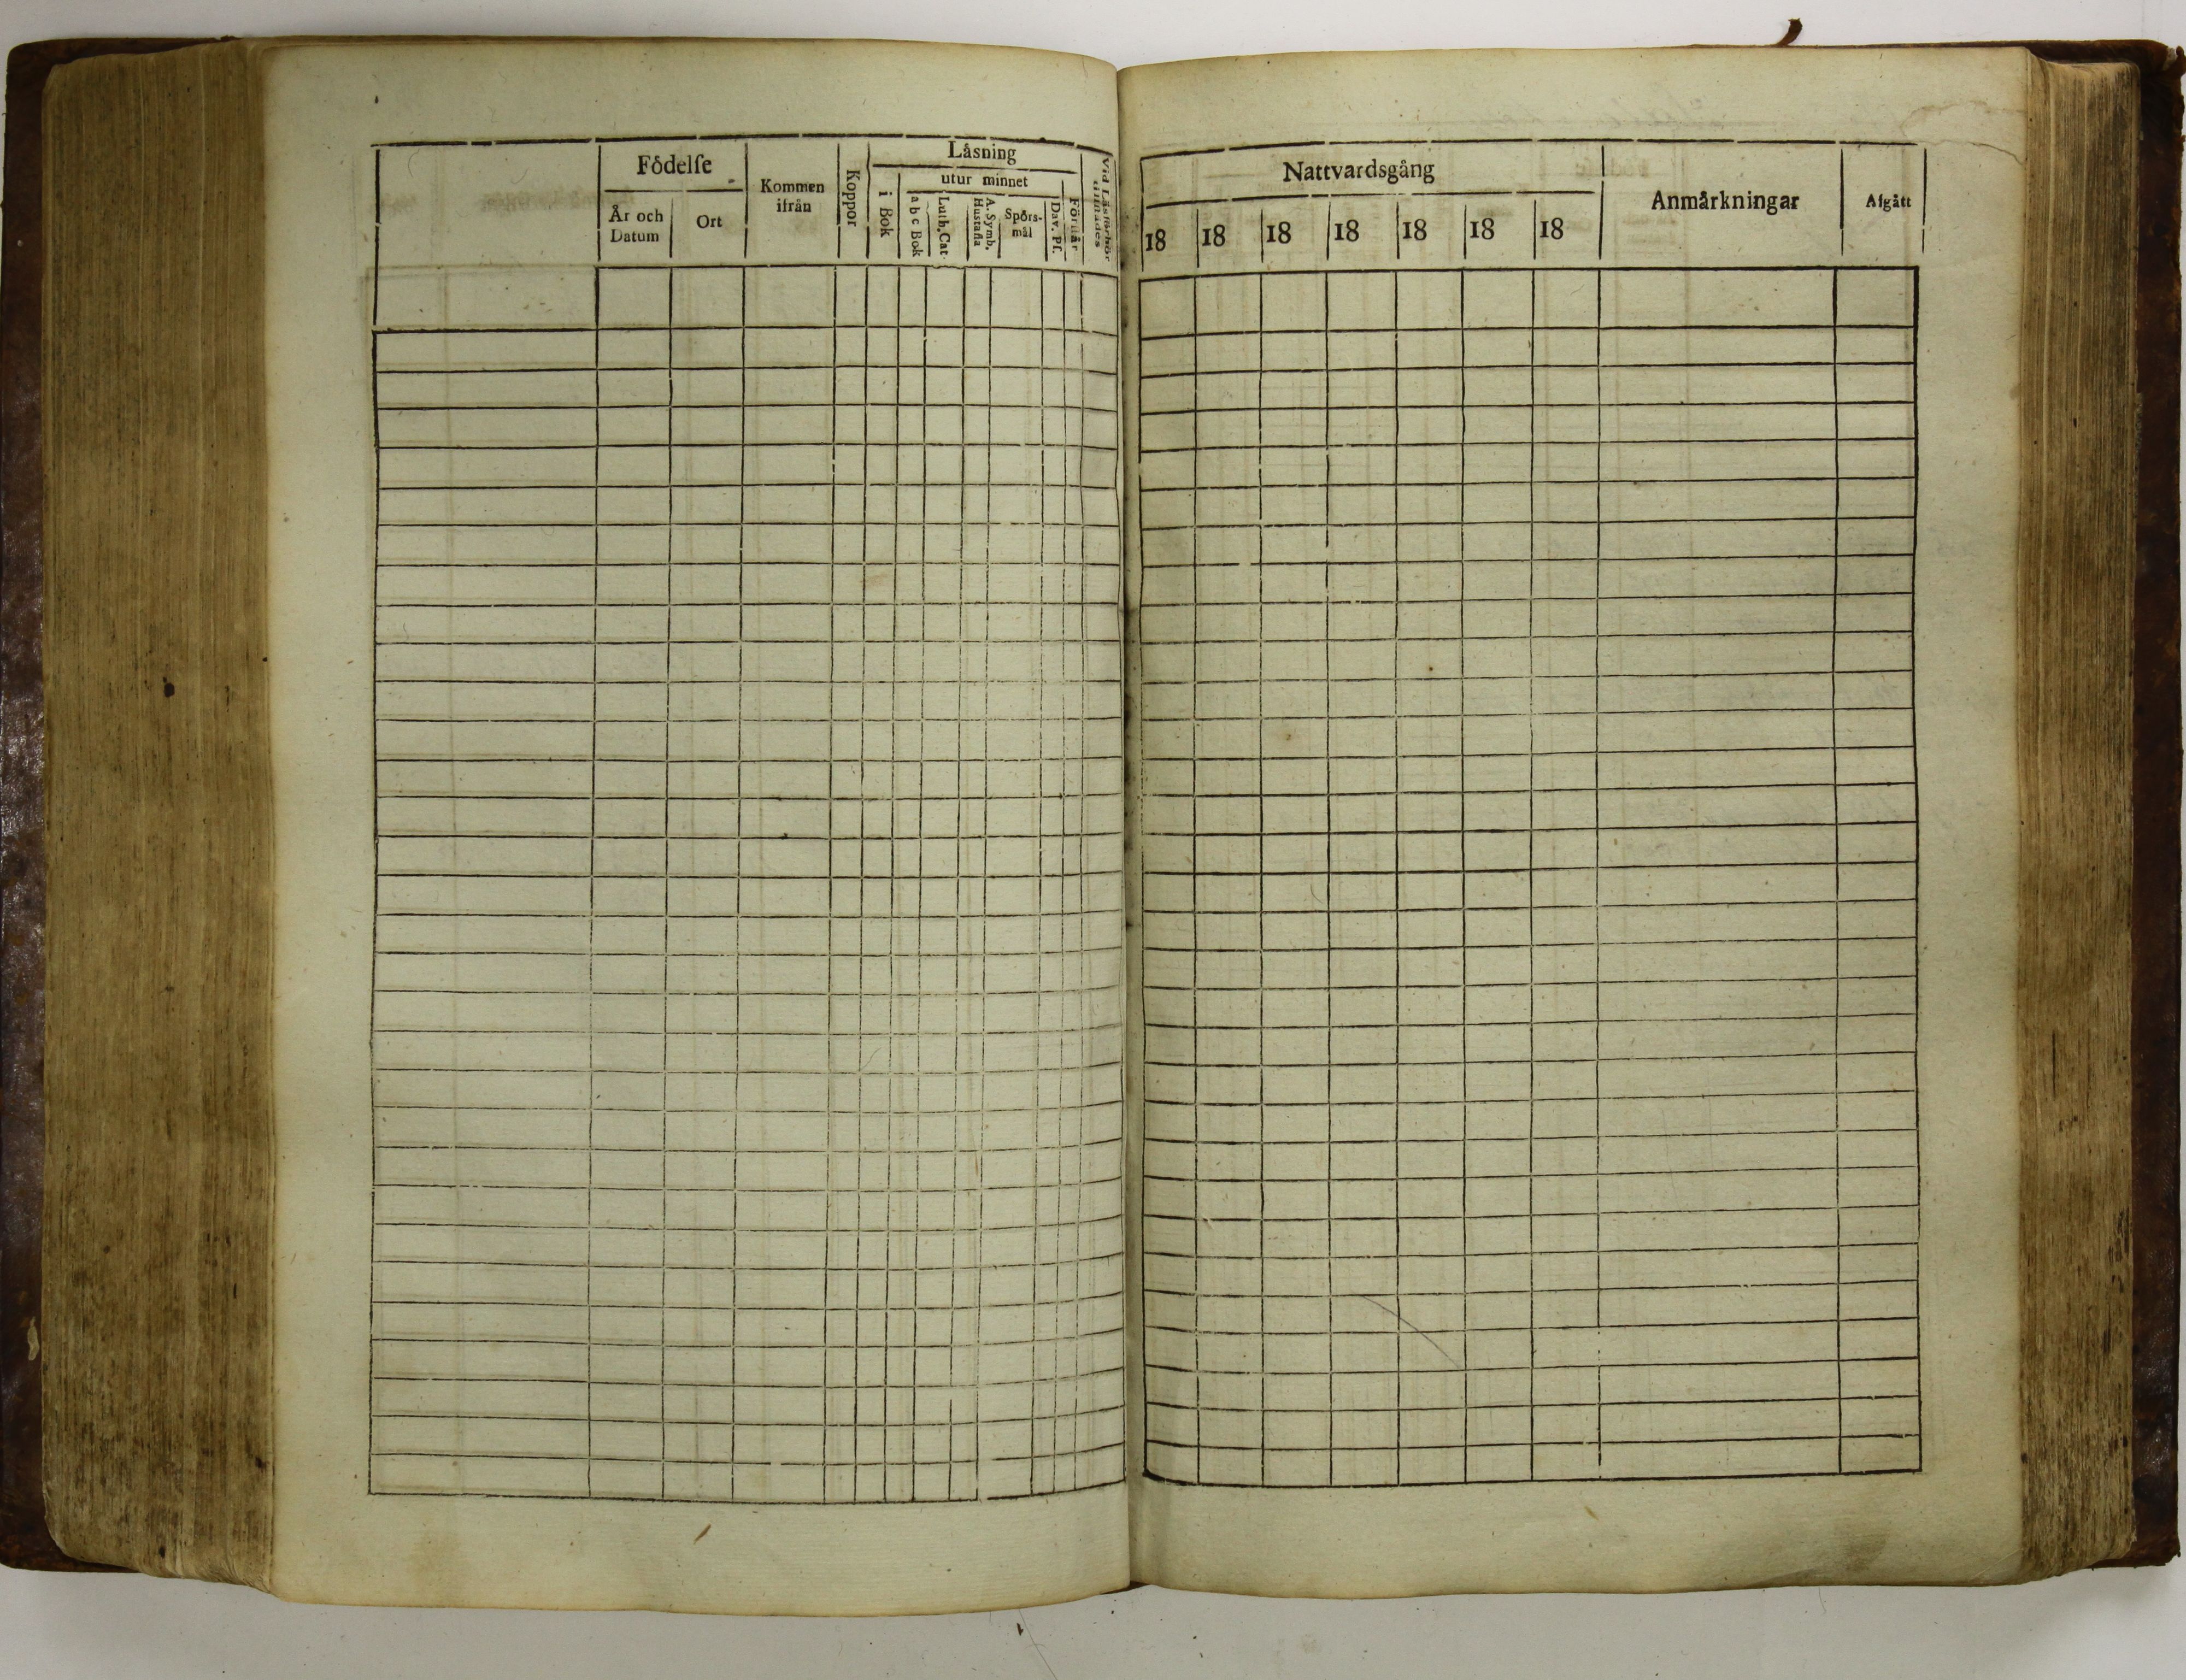 Födelſe
År och
Datum
Ort
Kommen
ifrån
Koppor
Låsning
i Bok
utur minnet
a b c Bok
Luth. Cat.
A. Symb.
Hustafla
Spörs-
mål
Dav. Pſ.
Förstår
Vid Låsförhör
tillstädes
Nattvardsgång
18 18 18 18 18 18 18
Anmårkningar
Afgått